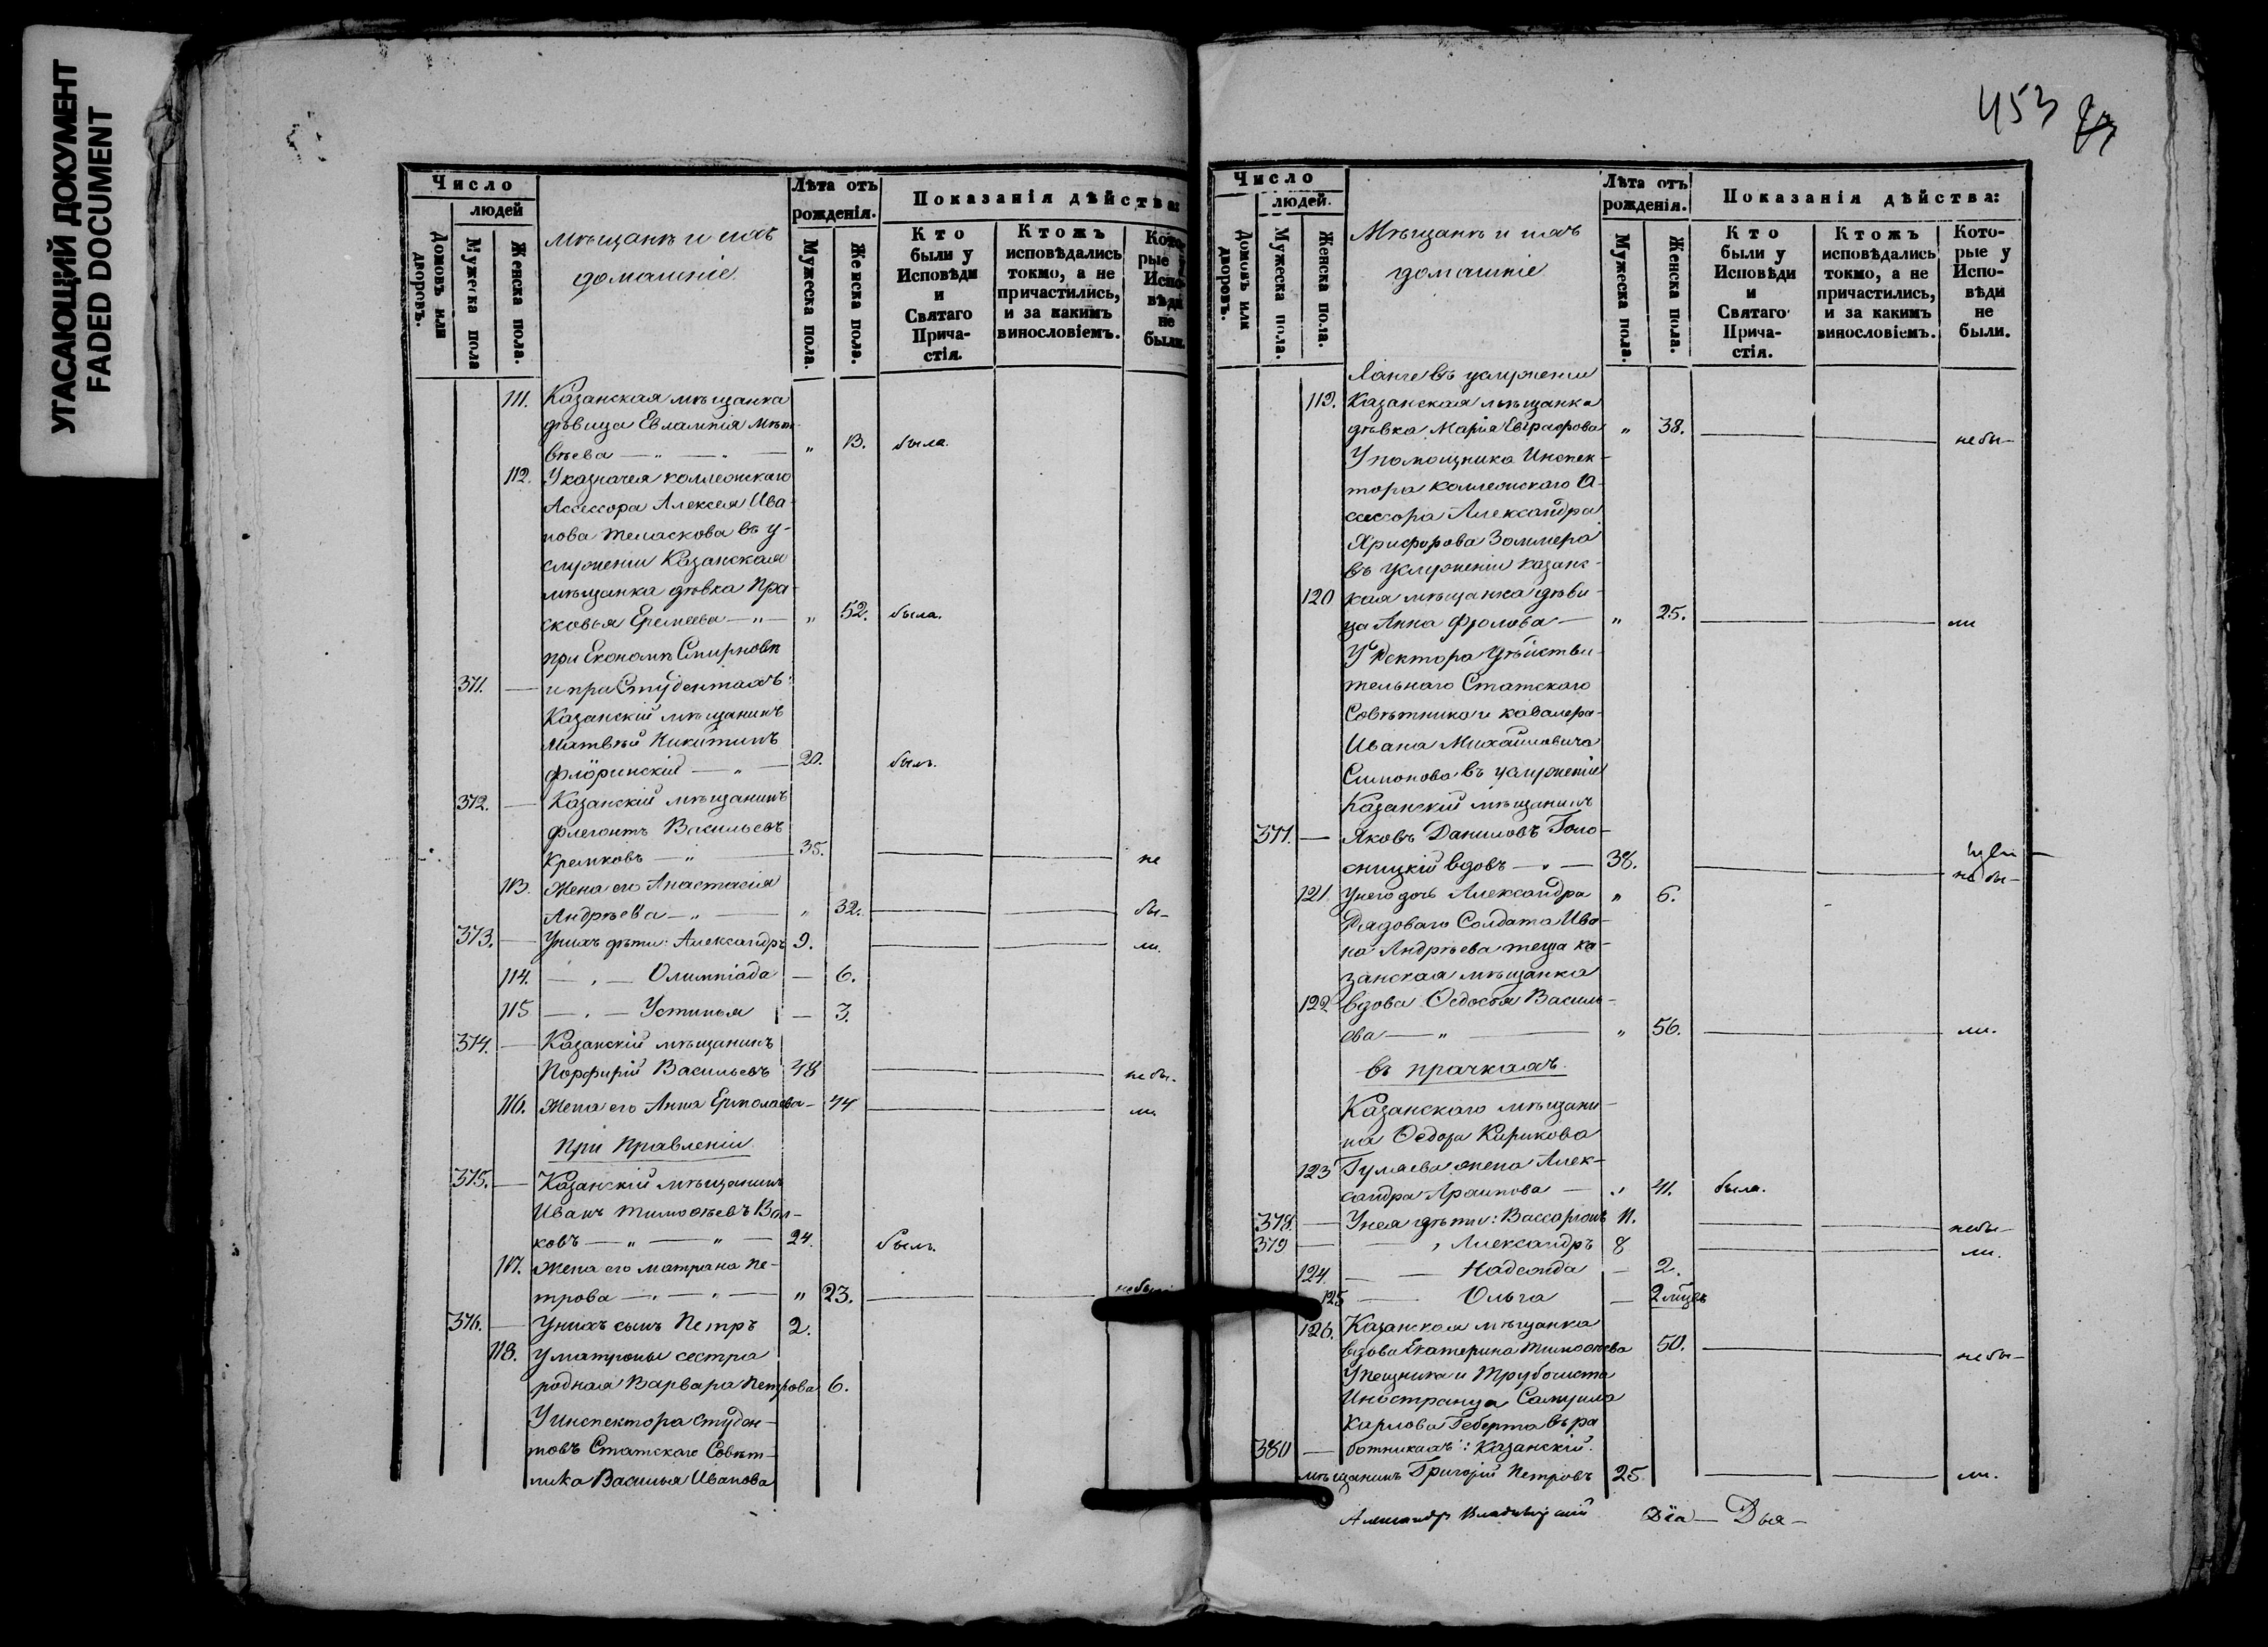 УГАСАЮЩИЙ ДОКУМЕНТ
FADED DOCUMENT
453
Число
людей
Домовъ или дворовъ.
Мужеска пола
Женска пола.
Мѣщанъ и ихъ
домашніе
Лѣта отъ
рожденія.
Мужеска пола.
Женска пола.
Показанія дѣйства:
Кто были у Исповѣди и Святаго Прича-стія.
Ктожъ исповѣдались токмо, а не причастились, и за какимъ винословіемъ.
Кото-рые у Испо-вѣди не были.
111. Казанская мѣщанка
дѣвица Евлампія Матв-
вѣева — „ — „ — „ 13. была.
112. У казначея коллежскаго
Ассессора Алексея Ива-
нова Желаскова въ у-
служеніи Казанская
мѣщанка дѣвка Пра-
сковья Еремеева — „ — „ 52. была.
при Економѣ Смирновѣ
371. — и при Студентахъ:
Казанскій мѣщанинъ
Матвѣй Никитинъ
Флоринскій — „ — 20. былъ.
372. — Казанскій мѣщанинъ
Флегонтъ Васильевъ
Кремковъ — „ — 35. не
113. Жена его Анастасія
Андрѣева — „ — „ 32. бы-
373. — У нихъ дѣти: Александръ 9. ли.
114. — „ — Олимпіада — 6.
115 — „ — Устинья — 3.
374. — Казанскій мѣщанинъ
Порфирій Васильевъ 48 не бы-
116. Жена его Анна Ермолаева — 44 ли.
При Правленіи
375. — Казанскій мѣщанинъ
Иванъ Тимоѳѣевъ Вол-
ковъ — „ — „ — 24. былъ.
117. Жена его Матрена Пе-
трова — „ — „ — „ 23. не были
376. — У нихъ сынъ Петръ 2.
118. У матроны сестра
родная Варвара Петрова 6.
У инспектора студен-
товъ Статскаго Совѣт-
ника Василья Иванова
Число
людей.
Домовъ или дворовъ.
Мужеска пола.
Женска пола.
Мѣщанъ и ихъ
домашніе
Лѣта отъ
рожденія.
Мужеска пола.
Женска пола.
Показанія дѣйства:
Кто были у Исповѣди и Святаго Прича-стія.
Ктожъ исповѣдались токмо, а не причастились, и за какимъ винословіемъ.
Кото-рые у Испо-вѣди не были.
Ланге въ услуженіи
119. Казанская мѣщанка
дѣвка Марія Евграфова „ 38. не бы-
У помощника Инспек-
тора коллежскаго А-
сессора Александра
Христофорова Зоммера
въ услуженіи казанс-
120 кая мѣщанка дѣви-
ца Анна Фролова — „ 25. ли
У Ректора Дѣйстви-
тельнаго Статскаго
Совѣтника и кавалера
Ивана Михайловича
Симонова въ услуженіе
Казанскій мѣщанинъ
377. — Яковъ Даниловъ Голо-
сницкій вдовъ — „ — 38. не бы-
121. У него дочь Александра „ 6.
Рядоваго Солдата Ива-
на Андрѣева теща ка-
занская мѣщанка
122 вдова Ѳедосья Василь-
ева — „ — „ 56. ли.
въ прачкахъ.
Казанскаго мѣщани-
на Ѳедора Кирикова
123 Гуляева жена Алек-
сандра Архипова — „ 41. была.
378. — У нея дѣти: Вассаріонъ 11. не бы-
379 — „ Александръ 8 ли.
124. — — Надежда — 2.
125 — Ольга — 2 мѣсяц.
126. Казанская мѣщанка
вдова Екатерина Тимоѳѣева 50. не бы-
У пещника и Трубочиста
Иностранца Самуила
Карлова Геберта въ ра
380 — ботникахъ: Казанскій
мѣщанинъ Григорій Петровъ 25 ли.
Александръ Владимірскій Діа — Дья —